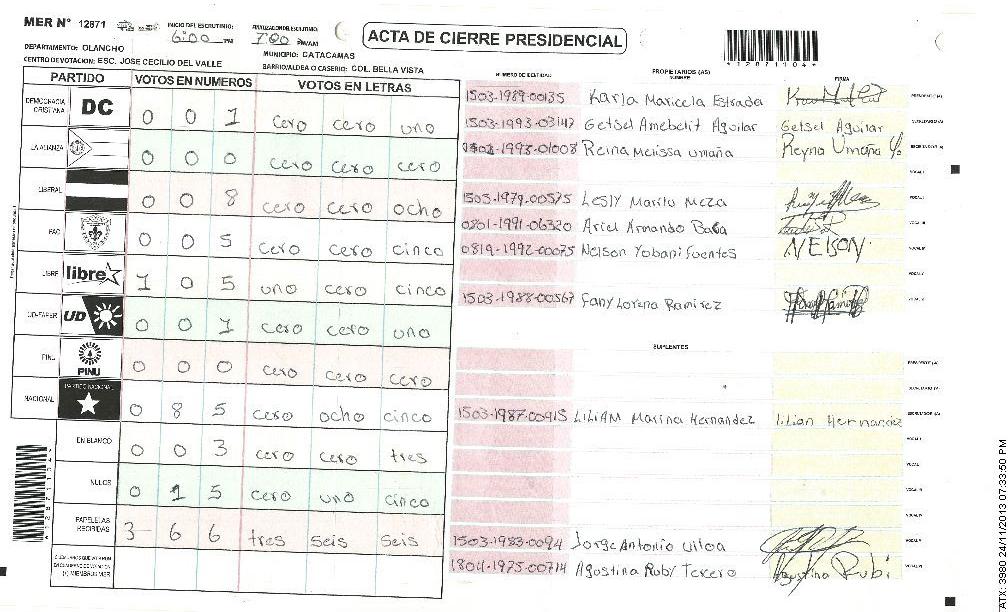 MER N° 12871
INICIO DEL ESCRUTINIO: 6:00 PM
FINALIZACION DEL ESCRUTINIO: 7:00 PM/AM
ACTA DE CIERRE PRESIDENCIAL
*12871104*
DEPARTAMENTO: OLANCHO
MUNICIPIO: CATACAMAS
CENTRO DE VOTACION: ESC. JOSE CECILIO DEL VALLE
BARRIO/ALDEA O CASERIO: COL. BELLA VISTA
PARTIDO VOTOS EN NUMEROS VOTOS EN LETRAS
DEMOCRACIA CRISTIANA DC 0 0 1 cero cero uno
LA ALIANZA 0 0 0 cero cero cero
LIBERAL 0 0 8 cero cero ocho
PAC 0 0 5 cero cero cinco
LIBRE libre 1 0 5 uno cero cinco
UD-FAPER UD 0 0 1 cero cero uno
PINU PINU 0 0 0 cero cero cero
NACIONAL PARTIDO NACIONAL 0 8 5 cero ocho cinco
EN BLANCO 0 0 3 cero cero tres
NULOS 0 1 5 cero uno cinco
PAPELETAS RECIBIDAS 3 6 6 tres seis seis
CIUDADANOS QUE VOTARON EN CUADERNO DE VOTACION (+) MIEMBROS MER
NUMERO DE IDENTIDAD PROPIETARIOS (AS) NOMBRE FIRMA
1503-1989-00135 Karla Maricela Estrada PRESIDENTE (A)
1503-1993-03147 Getsel Amebelit Aguilar Getsel Aguilar SECRETARIO (A)
1503-1993-01008 Reina Melissa umaña Reyna Umaña ESCRUTADOR (A)
VOCAL I
1505-1979-00575 LESLY Marilu Meza VOCAL II
0801-1991-06320 Ariel Armando Baca VOCAL III
0819-1992-00075 Nelson Yobani fuentes NELSON VOCAL IV
VOCAL V
1503-1988-00567 fany Lorena Ramirez VOCAL VI
SUPLENTES
PRESIDENTE (A)
SECRETARIO (A)
1503-1987-00915 LILIAM Marina Hernandez Lilian Hernandez ESCRUTADOR (A)
VOCAL I
VOCAL II
VOCAL III
VOCAL IV
1503-1983-0094 Jorge Antonio ulloa VOCAL V
1804-1975-00714 Agostina Ruby Tercero Agustina Rubi VOCAL VI
TATX: 3980 24/11/2013 07:33:50 PM